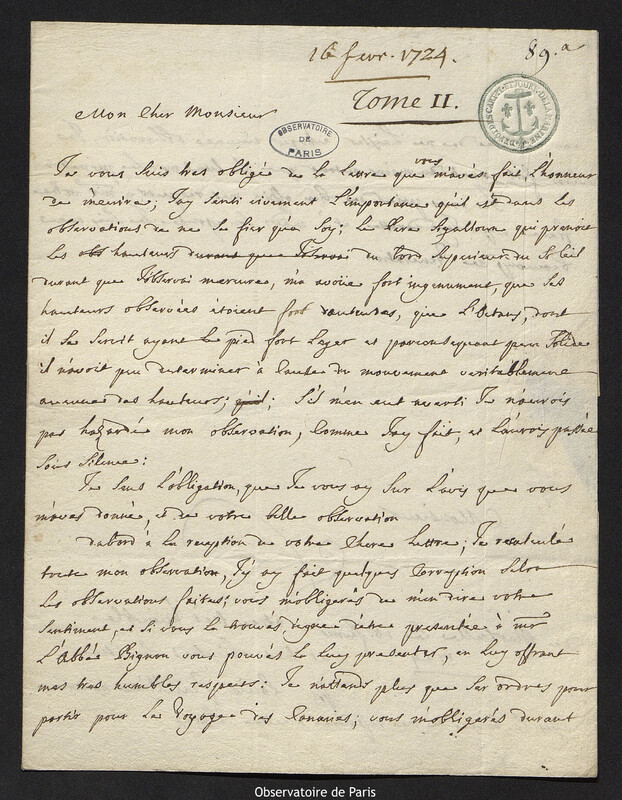 16 fevr. 1724.
89.a
Tome II.
Mon Cher Monsieur
OBSERVATOIRE DE PARIS
Je vous suis tres obligée de la Lettre que vous mavés fait L'honneur
de mécrire; Jay senti vivement L'importance quil est dans les
observations de ne se fier qua soy; Le Pere qui prenoit
les obs hauteurs durant que J'observois du bord superieur du Soleil
durant que J'observois mercure, ma avoüe fort ingenument, que ses
hauteurs observées étoient fort douteuses, que L'Octans, dont
il se servit ayant le pied fort Leger et parconsequent peu solide
il navoit peu determiner à cause du mouvement veritablement
aucune des hauteurs; quil; S'il m'en eut averti Je n'aurois
pas hazardée mon observation, comme Jay fait, et L'aurois passée
sous silence:
Je sens L'obligation, que Je vous ay sur L'avis que vous
m'avés donnée, et de votre belle observation
dabord à la reception de votre Chere Lettre; Je recalculé
toute mon observation, J'y ay fait quelques Correption selon
les observations faites; vous m'obligerés de m'en dire votre
sentiment, et si vous la trouvés digne detre presentée à mr
L'Abbé Bignon vous pouvés la luy presenter, en luy offrant
mes tres humbles respects: Je n'attends plus que ses ordres pour
partir pour le Voyage des Canaries; vous m'obligerés durant
Observatoire de Paris